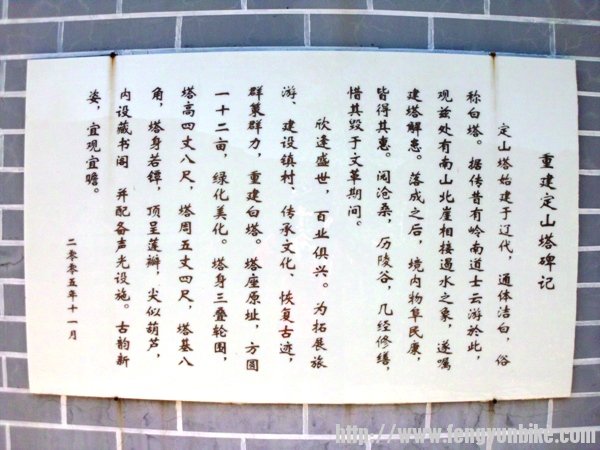 重建定山塔碑记
定山塔始建于辽代，通体洁白，俗
称白塔。据传昔有岭南道士云游於此，
观兹处有南山北崖相接遏水之象，遂嘱
建塔解患。落成之后，境内物阜民康，
皆得其惠。阅沧桑，历陵谷，几经修缮，
惜其毁于文革期间。
欣逢盛世，百业俱兴。为拓展旅
游、建设镇村、传承文化、恢复古迹，
群策群力，重建白塔。塔座原址，方圆
一十二亩，绿化美化。塔身三叠轮图，
塔高四丈八尺，塔周五丈四尺，塔基八
角，塔身若镡，顶呈莲瓣，尖似葫芦，
内设藏书阁 并配备声光设施。古韵新
姿，宜观宜瞻。
二零零五年十一月
http://www.fengyunbike.com/